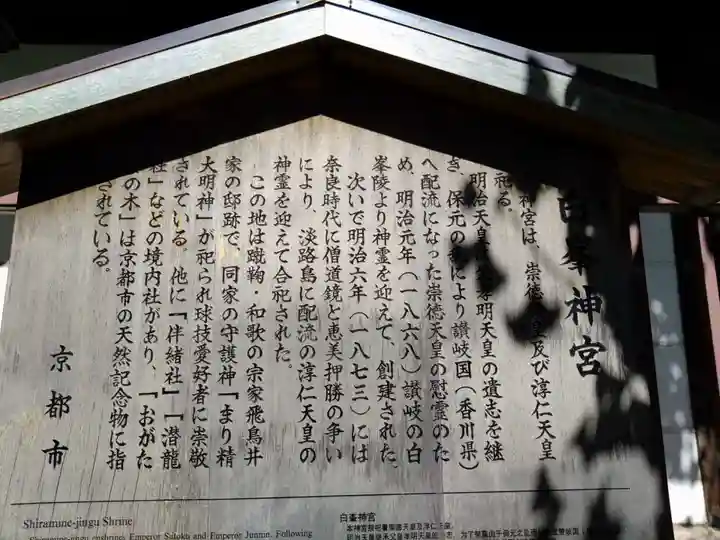 白峯神宮
神宮は、崇徳天皇及び淳仁天皇
祀る。
明治天皇は父孝明天皇の遺志を継
き、保元の乱により讃岐国(香川県)
へ配流になった崇徳天皇の慰霊のた
め、明治元年(一八六八)讃岐の白
峯陵より神霊を迎えて、創建された。
次いで明治六年(一八七三)には
奈良時代に僧道鏡と恵美押勝の争い
により、淡路島に配流の淳仁天皇の
神霊を迎えて合祀された。
この地は蹴鞠・和歌の宗家飛鳥井
家の邸跡で、同家の守護神「まり精
大明神」が祀られ球技愛好者に崇敬
されている。他に「伴緒社」「潜龍
社」などの境内社があり、「おがた
の木」は京都市の天然記念物に指
されている。
京都市
Shiramine-jingu Shrine
Shiramine-jingu enshrines Emperor Sutoku and Emperor Junnin. Following
白峯神宮